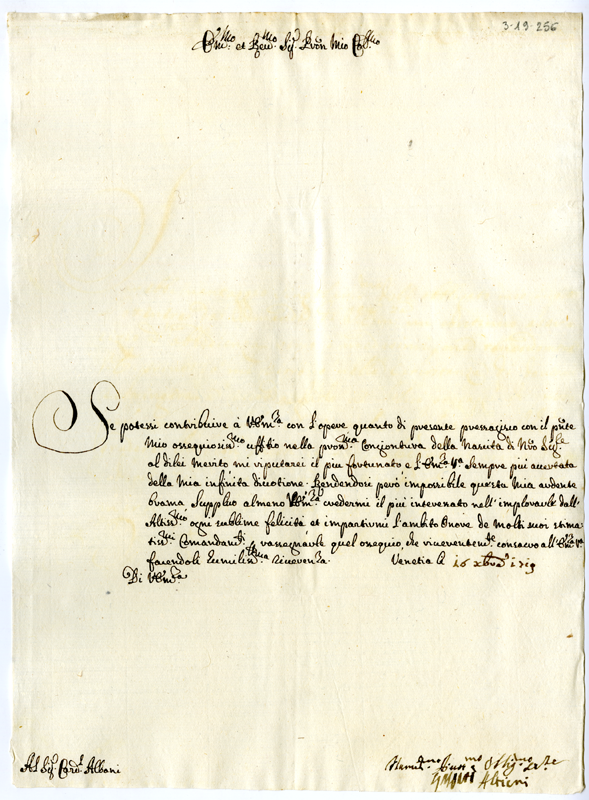 3-19-256
Em.mo et Rev.mo Sig.r P'ron Mio Col.mo
Se potessi contribuire à V. Em.za con l'opere quanto di presente pressagisco con il p'nte
mio ossequiosiss.mo uffitio nella pross.ma Congiontura della Nascita di N'ro Sig.re
al di lei Merito mi riputarei il piu fortunato e l'Em.za V'ra sempre piu accertata
della Mia infinita divotione. Rendendosi però impossibile questa Mia ardente
brama Supplico almeno V. Em.za credermi il più interenato nell'implorarle dall'
Altiss.mo ogni sublime felicità et impartirmi l'ambito Onore de molti suoi stima
tiss.mi Comandam.ti, rassegnarle quel ossequio, che riverentem.te consacro all'Em.za V'ra
facendole humiliss.ma riverenza. Venetia li 16 xbre 1719
Di V. Em.za
Al Sig.r Card.l Albani
Humil.mo Divot.mo Oblig.mo Ser.re
Altieri